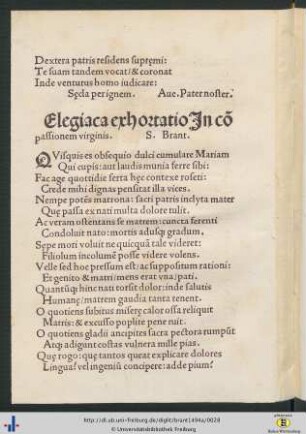 Dextera patris residens supręmi:
Te suam tandem vocat/ & coronat
Inde venturus homo iudicare:
Sęcla per ignem. Aue. Pater noster.
Elegiaca exhortatio In cō
passionem virginis. S. Brant.
QVisquis es obsequio dulci cumulare Mariam
Qui cupis: aut laudis munia ferre sibi:
Fac age quottidie serta hęc contexe roseti:
Crede mihi dignas pensitat illa vices.
Nempe potēs matrona: sacri patris inclyta mater
Quę passa ex nati multa dolore tulit.
Ac veram ostentans se matrem: cuncta ferenti
Condoluit nato: mortis adusq; gradum.
Sępe mori voluit ne quicquā tale videret:
Filiolum incolumē posse videre volens.
Velle sed hoc pressum est: ac suppositum rationi:
Et genito & matri mens erat vna pati.
Quantūq; hinc nati torsit dolor: inde salutis
Humanę/ matrem gaudia tanta tenent.
O quotiens subitus miserę calor ossa reliquit
Matris: & excusso poplite pene ruit.
O quotiens gladii ancipites sacra pectora rumpūt
Atq; adigunt costas vulnera mille pias.
Quę rogo: quę tantos queat explicare dolores
Lingua? vel ingeniū concipere: adde pium?
http://dl.ub.uni-freiburg.de/diglit/brant1494a/0028
© Universitätsbibliothek Freiburg
Baden-Württemberg